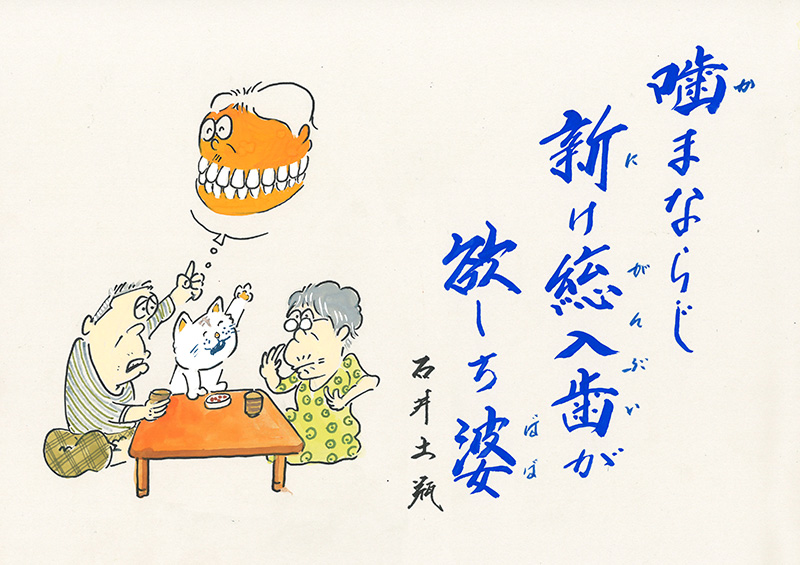 噛まならじ
か
新け総入歯が
に がんぶい
欲しち婆
ばば
石井土瓶